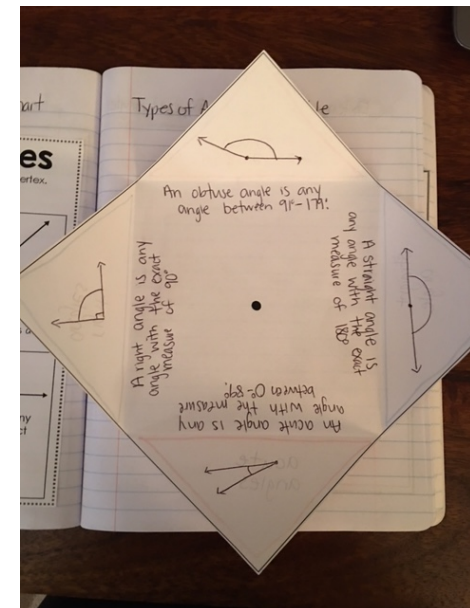 art
Types of A
le
es
ertex.
An obtuse angle is any
angle between 91-179°.
A straight angle is
any angle with the exact
measure of 180°
An acute angle is any
angle with the measure
between 0-89°.
A right angle is any
angle with the exact
measure of 90°
ny